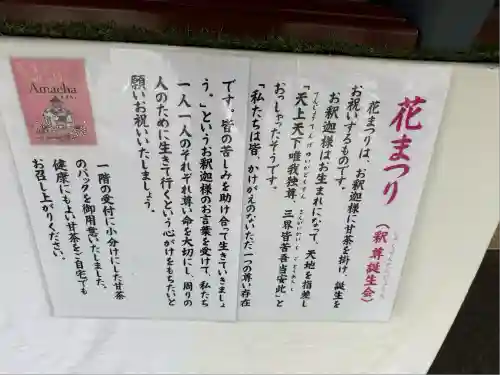 花まつり(釈尊誕生会)
花まつりは、お釈迦様に甘茶を掛け、誕生を
お祝いするものです。
お釈迦様はお生まれになって、天地を指差し
「天上天下唯我独尊、三界皆苦吾当安此」と
おっしゃったそうです。
「私たちは皆、かけがえのないただ一つの尊い存在
です。皆の苦しみを助け合って生きていきましょ
う。」というお釈迦様のお言葉を受けて、私たち
一人一人のそれぞれ尊い命を大切にし、周りの
人のために生きて行くという心がけをもちたいと
願いお祝いいたしましょう。
一階の受付に小分けにした甘茶
のパックを御用意いたしました。
健康にもよい甘茶をご自宅でも
お召し上がりください。
Amacha